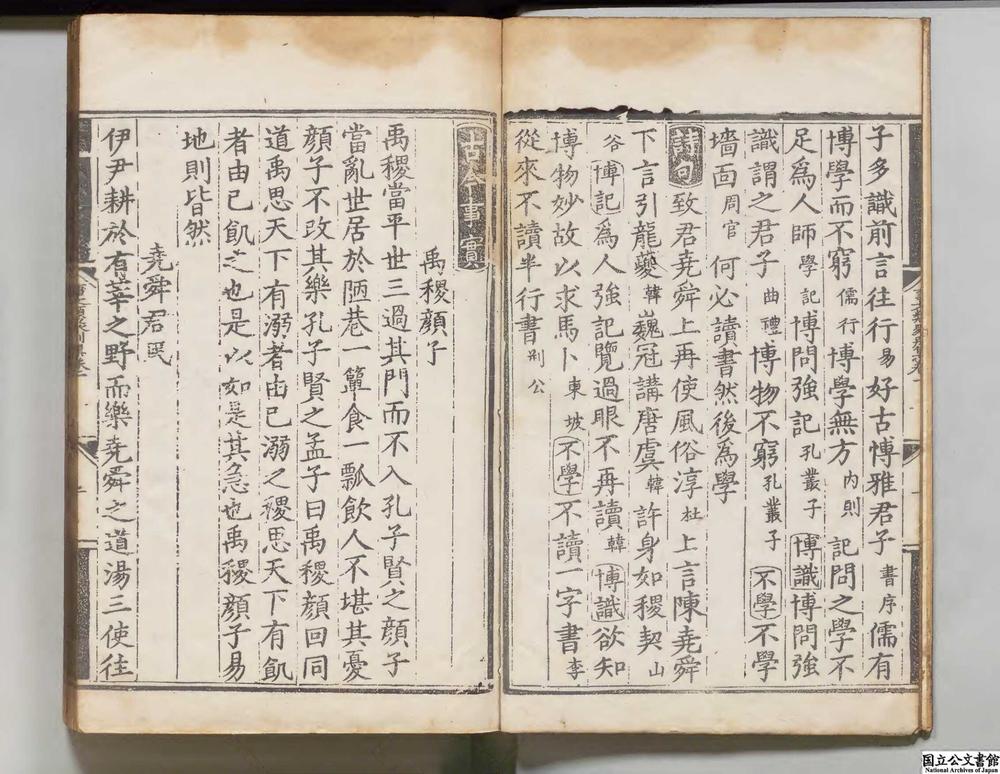 子多識前言往行易好古博雅君子書序儒有
博學而不窮儒行博學無方內則記問之學不
足爲人師學記博問強記孔叢子博識博問強
識謂之君子曲禮博物不窮孔叢子不學不學
墻面周官何必讀書然後爲學
詩句致君堯舜上再使風俗淳杜上言陳堯舜
下言引龍夔韓巍冠講唐虞韓許身如稷契山
谷博記爲人強記覽過眼不再讀韓博識欲知
博物妙故以求馬卜東坡不學不讀一字書李
從來不讀半行書別公
古今事實
禹稷顏子
禹稷當平世三過其門而不入孔子賢之顏子
當亂世居於陋巷一簞食一瓢飲人不堪其憂
顏子不改其樂孔子賢之孟子曰禹稷顏回同
道禹思天下有溺者由己溺之稷思天下有飢
者由己飢之也是以如是其急也禹稷顏子易
地則皆然
堯舜君民
伊尹耕於有莘之野而樂堯舜之道湯三使往
国立公文書館
National Archives of Japan